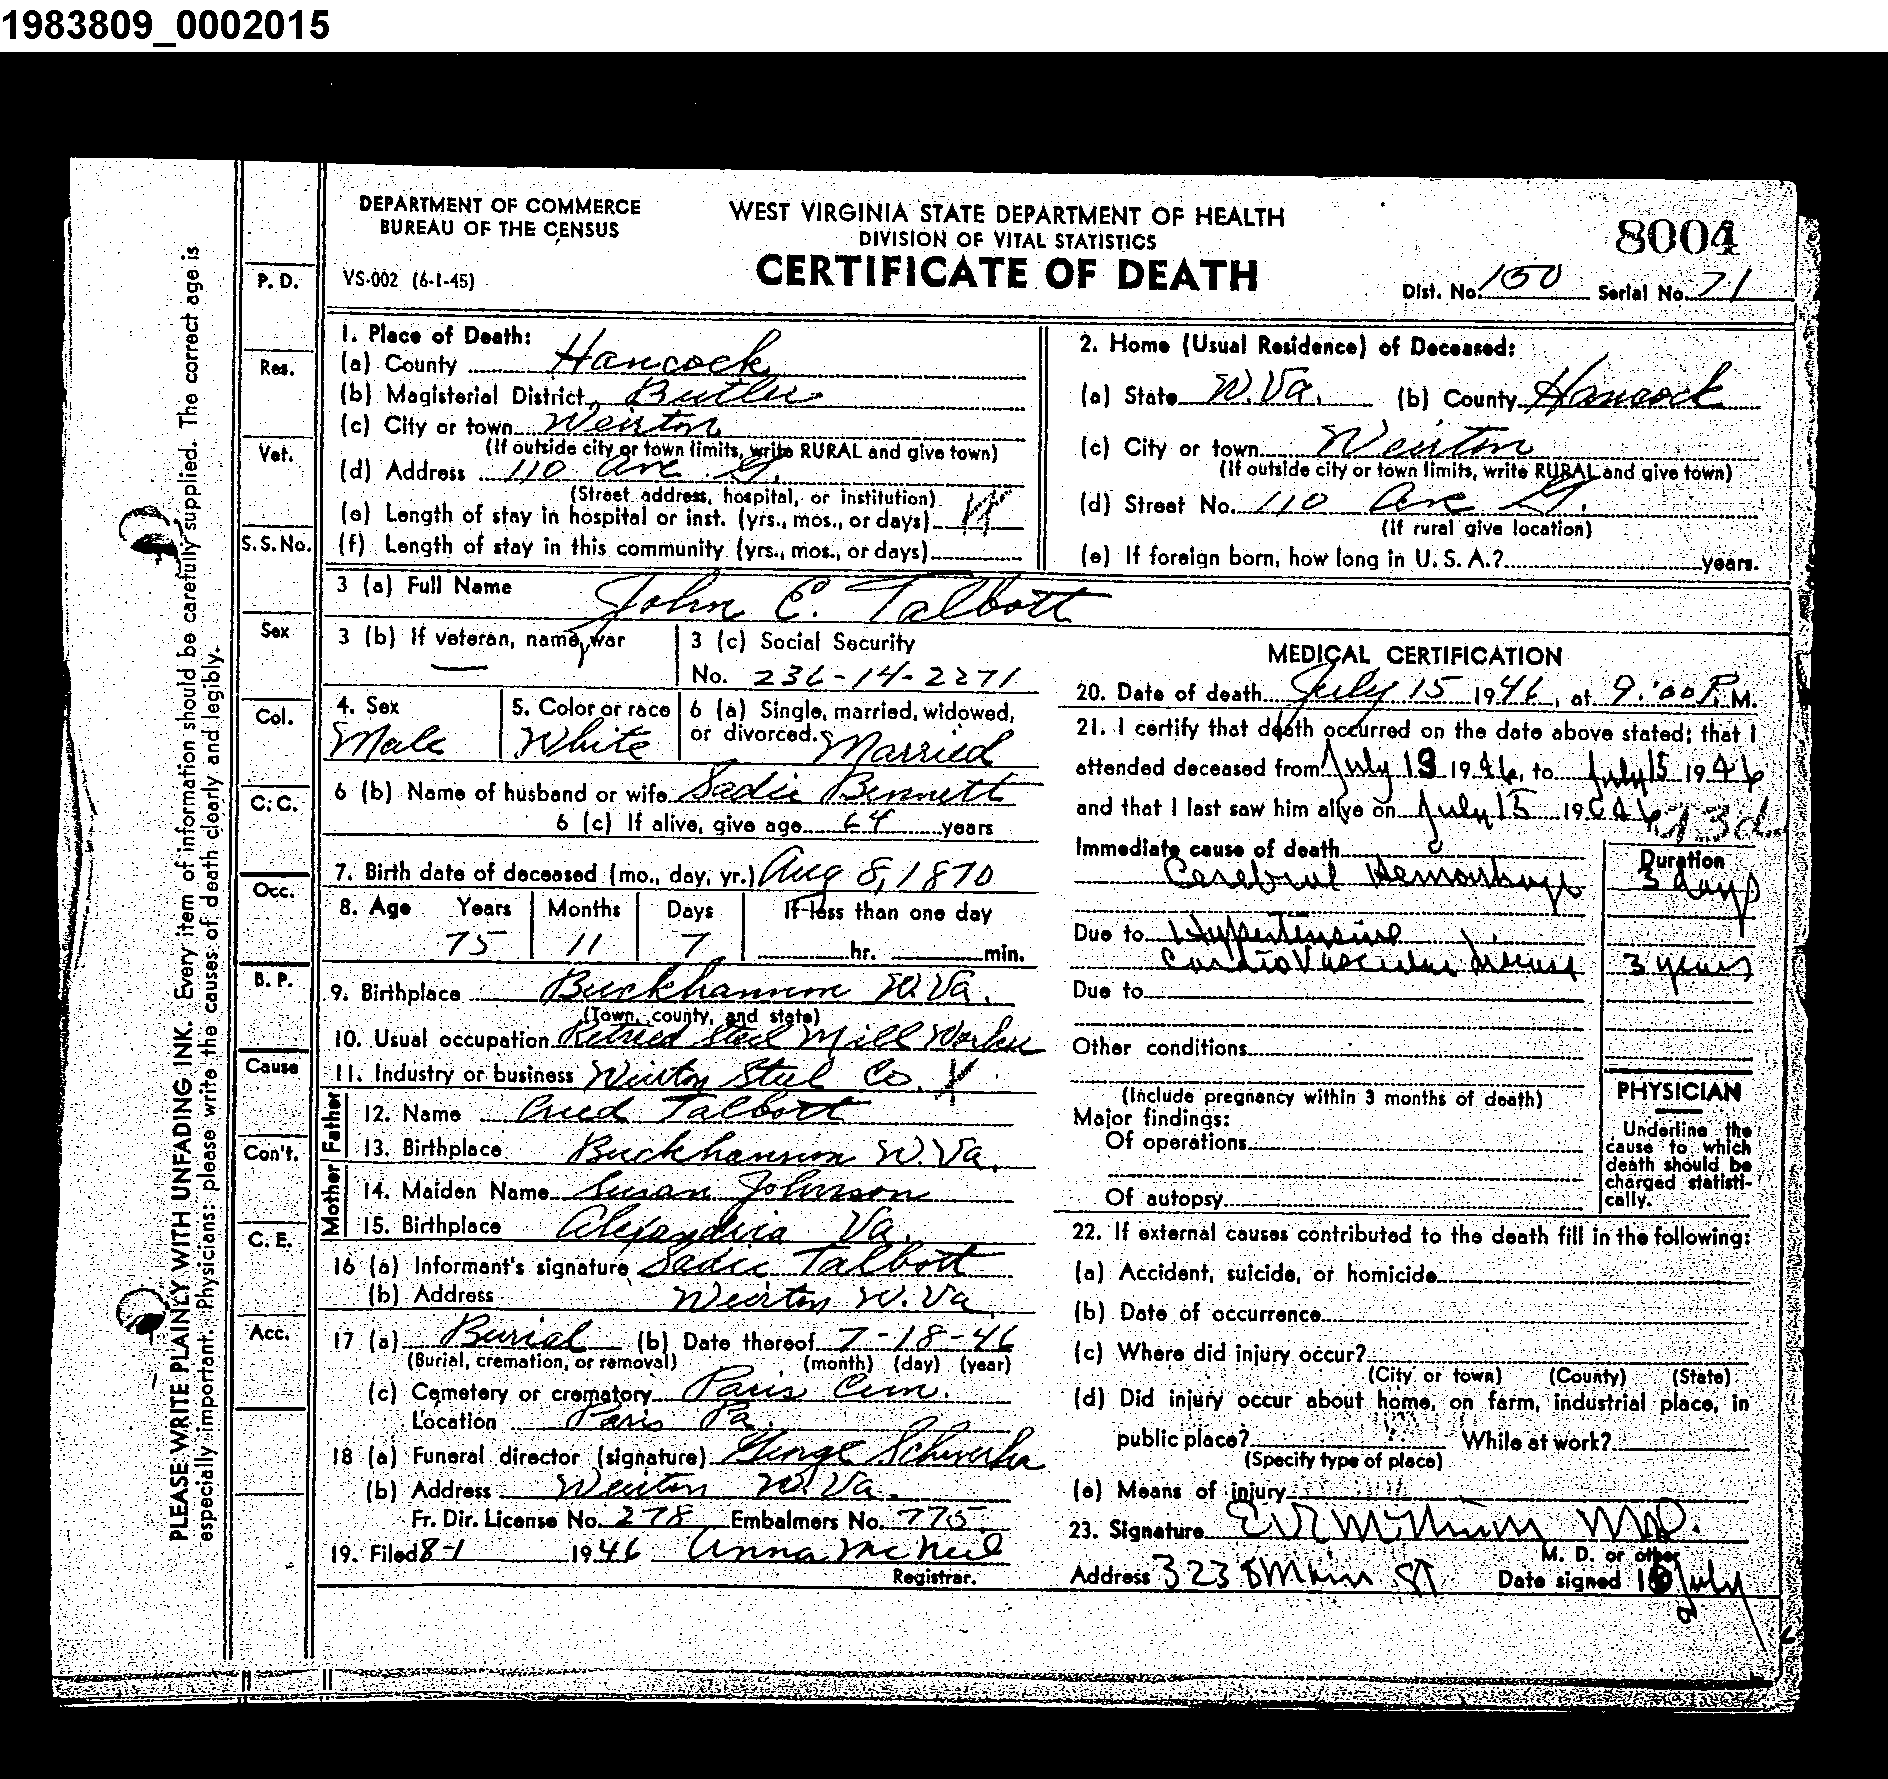 1983809_0002015
DEPARTMENT OF COMMERCE
BUREAU OF THE CENSUS
WEST VIRGINIA STATE DEPARTMENT OF HEALTH
DIVISION OF VITAL STATISTICS
CERTIFICATE OF DEATH
8004
VS-002 (6-1-45)
Dist. No. 150 Serial No. 71
PLEASE WRITE PLAINLY WITH UNFADING INK. Every item of information should be carefully supplied. The correct age is
especially important. Physicians: please write the causes of death clearly and legibly.
P. D.
Res.
Vet.
S. S. No.
Sex
Col.
C. C.
Occ.
B. P.
Cause
Con't.
C. E.
Acc.
1. Place of Death:
(a) County Hancock
(b) Magisterial District Butler
(c) City or town Weirton
(If outside city or town limits, write RURAL and give town)
(d) Address 110 Ave G.
(Street address, hospital, or institution)
(e) Length of stay in hospital or inst. (yrs., mos., or days)
(f) Length of stay in this community (yrs., mos., or days)
2. Home (Usual Residence) of Deceased:
(a) State W.Va. (b) County Hancock
(c) City or town Weirton
(If outside city or town limits, write RURAL and give town)
(d) Street No. 110 Ave G.
(If rural give location)
(e) If foreign born, how long in U. S. A.? years.
3 (a) Full Name John E. Talbott
3 (b) If veteran, name war —
3 (c) Social Security
No. 236-14-2271
4. Sex
Male
5. Color or race
White
6 (a) Single, married, widowed,
or divorced. Married
6 (b) Name of husband or wife Sadie Bennett
6 (c) If alive, give age 64 years
7. Birth date of deceased (mo., day, yr.) Aug 8, 1870
8. Age Years Months Days If less than one day
75 11 7 hr. min.
9. Birthplace Buckhannon W.Va.
(Town, county, and state)
10. Usual occupation Retried Steel Mill Worker
11. Industry or business Weirton Steel Co.
Father
12. Name Talbott
13. Birthplace Buckhannon W.Va.
Mother
14. Maiden Name Susan Johnson
15. Birthplace Alexandria Va.
16 (a) Informant's signature Sadie Talbott
(b) Address Weirton W.Va
17 (a) Burial (b) Date thereof 7-18-46
(Burial, cremation, or removal) (month) (day) (year)
(c) Cemetery or crematory Paris Cem.
Location Paris Pa.
18 (a) Funeral director (signature) George
(b) Address Weirton W.Va.
Fr. Dir. License No. 278 Embalmers No. 775
19. Filed 8-1 1946 Anna McNeil
Registrar.
MEDICAL CERTIFICATION
20. Date of death July 15 1946, at 9:00 P. M.
21. I certify that death occurred on the date above stated; that I
attended deceased from July 13 1946, to July 15 1946
and that I last saw him alive on July 15 19
Immediate cause of death
Cerebral Hemorrhage
Duration
3 days
Due to Hypertensive
Cardiovascular disease 3 years
Due to
Other conditions
(Include pregnancy within 3 months of death)
Major findings:
Of operations
Of autopsy
PHYSICIAN
Underline the
cause to which
death should be
charged statisti-
cally.
22. If external causes contributed to the death fill in the following:
(a) Accident, suicide, or homicide
(b) Date of occurrence
(c) Where did injury occur?
(City or town) (County) (State)
(d) Did injury occur about home, on farm, industrial place, in
public place? While at work?
(Specify type of place)
(e) Means of injury
23. Signature M.D.
M. D. or other
Address 323 Main St Date signed July